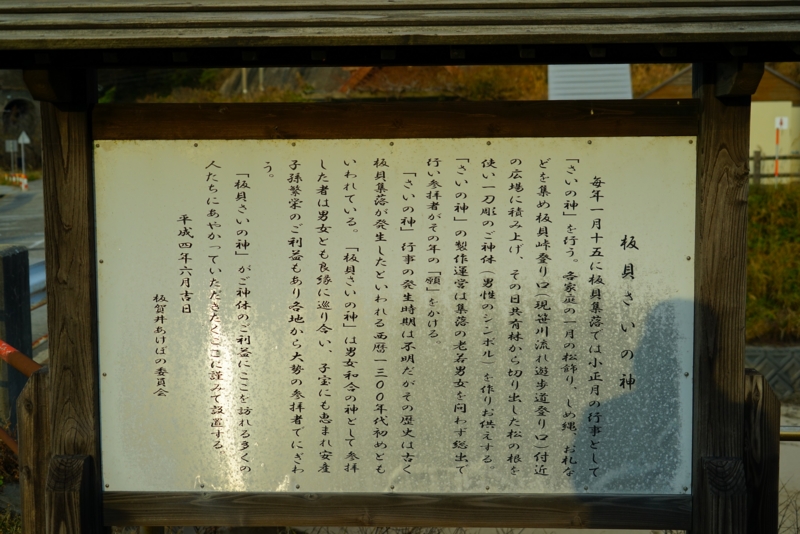 板貝さいの神
毎年一月十五に板貝集落では小正月の行事として
「さいの神」を行う。各家庭の一月の松飾り、しめ縄、お札な
どを集め板貝峠登り口(現笹川流れ遊歩道登り口)付近
の広場に積み上げ、その日共有林から切り出した松の根を
使い一刀彫のご神体(男性のシンボル)を作りお供えする。
「さいの神」の製作運営は集落の老若男女を問わず総出で
行い参拝者がその年の「願」をかける
「さいの神」行事の発生時期は不明だがその歴史は古く
板貝集落が発生したといわれる西暦一三〇〇年代初めとも
いわれている。「板貝さいの神」は男女和合の神として参拝
した者は男女とも良縁に巡り合い、子宝にも恵まれ安産
子孫繁栄のご利益もあり各地から大勢の参拝者でにぎわ
う。
「板貝さいの神」がご神体のご利益にここを訪れる多くの
人たちにあやかっていただきたくここに謹みて設置する。
平成四年六月吉日
板貝あけぼの委員会